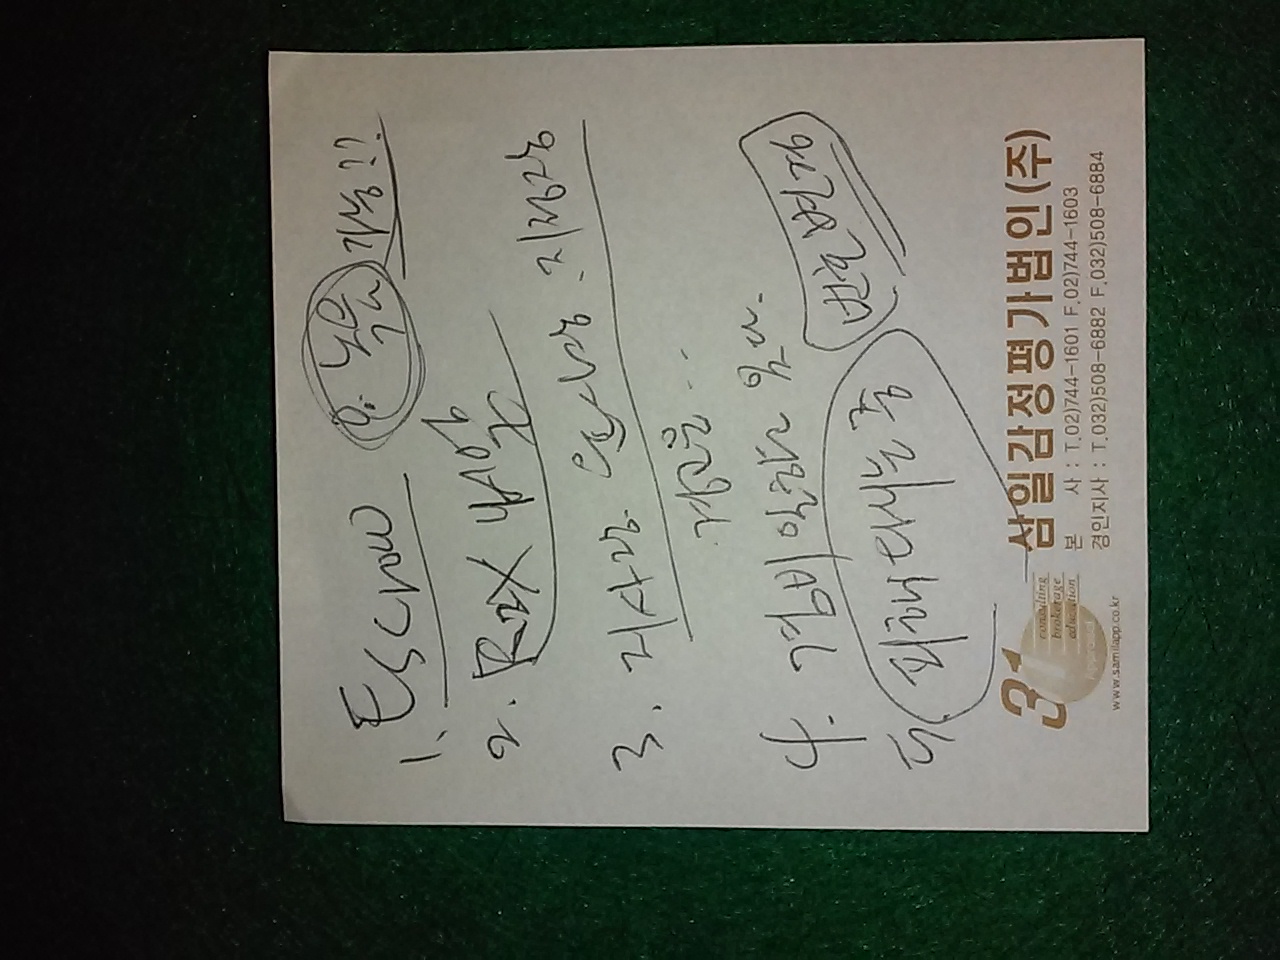 1. Escrow 0. 녹음 가능??
2. R2X 법인
3. 지사장. 윤사장. 지점장
경고문..
4. 경비일하고 있다.
5. 피해 다니는 중 번호변경
31 consulting
brokerage
education
Appraisal
www.samilapp.co.kr
삼일감정평가법인(주)
본 사 : T.02)744-1601 F.02)744-1603
경인지사 : T.032)508-6882 F.032)508-6884